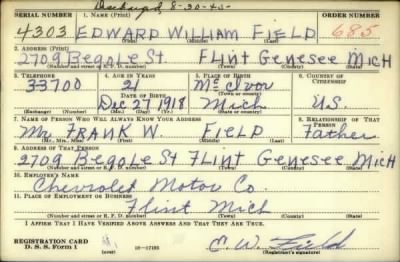 Discharged, 8-30-45-
SERIAL NUMBER 1. NAME (Print) ORDER NUMBER
4303 EDWARD WILLIAM FIELD 685
(First) (Middle) (Last)
2. ADDRESS (Print)
2709 Begole St. Flint Genesee Mich
(Number and street or R. F. D. number) (Town) (County) (State)
3. TELEPHONE 4. AGE IN YEARS 5. PLACE OF BIRTH 6. COUNTRY OF CITIZENSHIP
33700 21 Mc Ivor
DATE OF BIRTH (Town or county)
Dec 27 1918 Mich U.S.
(Exchange) (Number) (Mo.) (Day) (Yr.) (State or country)
7. NAME OF PERSON WHO WILL ALWAYS KNOW YOUR ADDRESS 8. RELATIONSHIP OF THAT PERSON
Mr. FRANK W. FIELD Father
(Mr., Mrs., Miss) (First) (Middle) (Last)
9. ADDRESS OF THAT PERSON
2709 Begole St Flint Genesee Mich
(Number and street or R. F. D. number) (Town) (County) (State)
10. EMPLOYER'S NAME
Chevrolet Motor Co.
11. PLACE OF EMPLOYMENT OR BUSINESS
Flint Mich
(Number and street or R. F. D. number) (Town) (County) (State)
I AFFIRM THAT I HAVE VERIFIED ABOVE ANSWERS AND THAT THEY ARE TRUE.
REGISTRATION CARD
D. S. S. Form 1 (over) 16-17105 E. W. Field
(Registrant's signature)